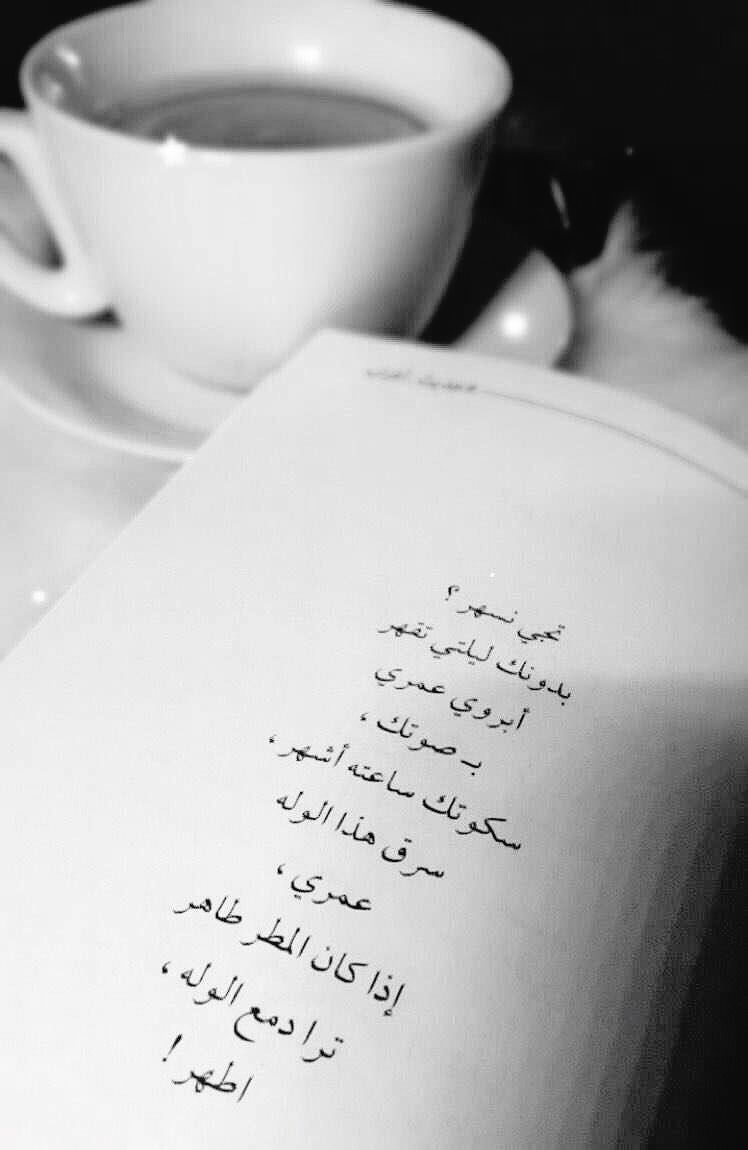 تجي نسهر ؟
بدونك ليلتي تقهر
أبروي عمري
بـ صوتك ،
سكوتك ساعته أشهر ،
سرق هذا الوله
عمري ،
إذا كان المطر طاهر
ترا دمع الوله ،
اطهر !